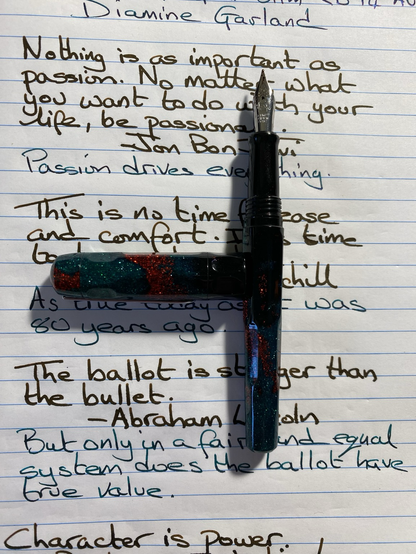 Diamine Garland
Nothing is as important as
passion. No matter what
you want to do with your
life, be passiona
-Jon Bon Jovi.
Passion drives everything.
This is no time for ease
and comfort. It is time
to
chill
As true today as it was
80 years ago
The ballot is stronger than
the bullet.
-Abraham Lincoln
But only in a fair and equal
system does the ballot have
true value.
Character is power.